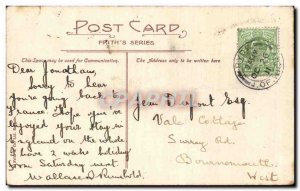 POST CARD
FRITH'S SERIES
This Space may be used for Communication.
The Address only to be written here.
Dear Jonathan,
Sorry to hear
you're going back to
France. Hope you've
enjoyed your stay in
England on the whole
I have 2 weeks holiday
from Saturday next.
Wallace D. Rumbold.
Jean Dupont Esq.
Vale Cottage
Surrey Rd.
Bournemouth
West